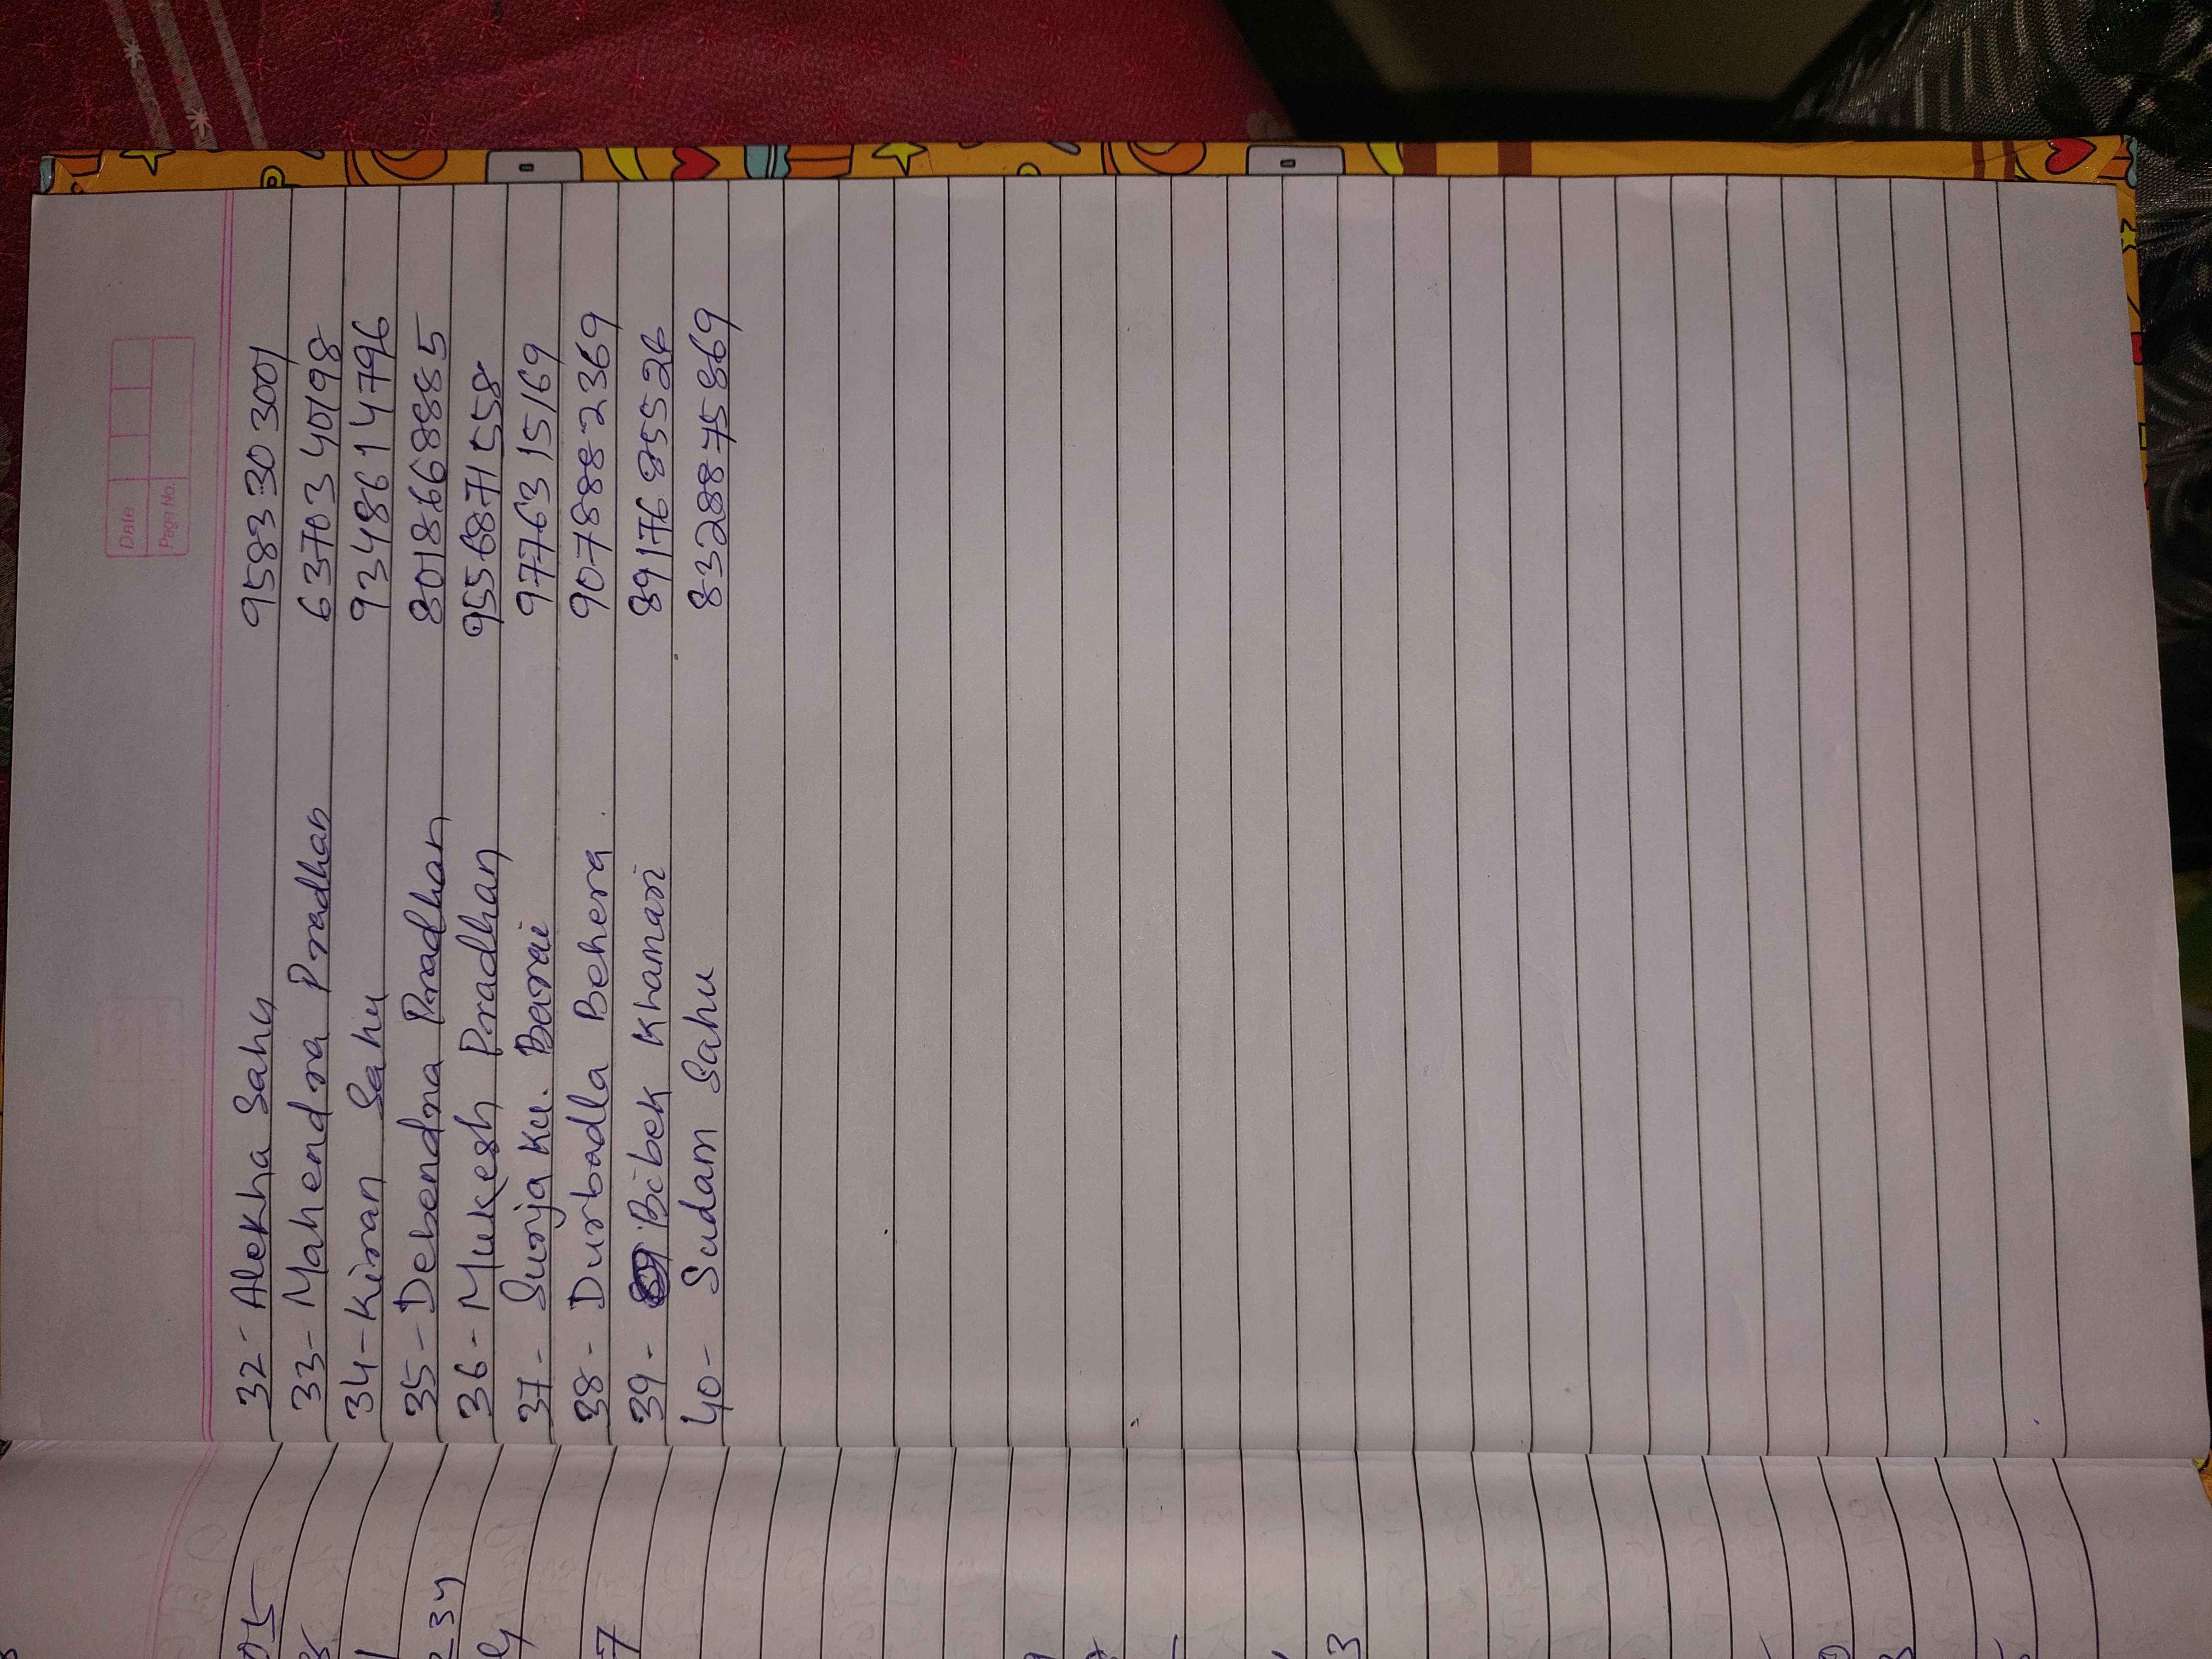 Date
Page No.
32- Alekha Sahu 9583303001
33- Mahendra Pradhan 6370340198
34- Kiran Sahu 9348614796
35- Debendra Pradhan 8018668885
36- Mukesh Pradhan 9556871558
37- Surja Ku. Barai 9776315169
38- Durbadla Behera. 9078882369
39- Bibek Khamari 8917685526
40- Sudam Sahu 8328875869